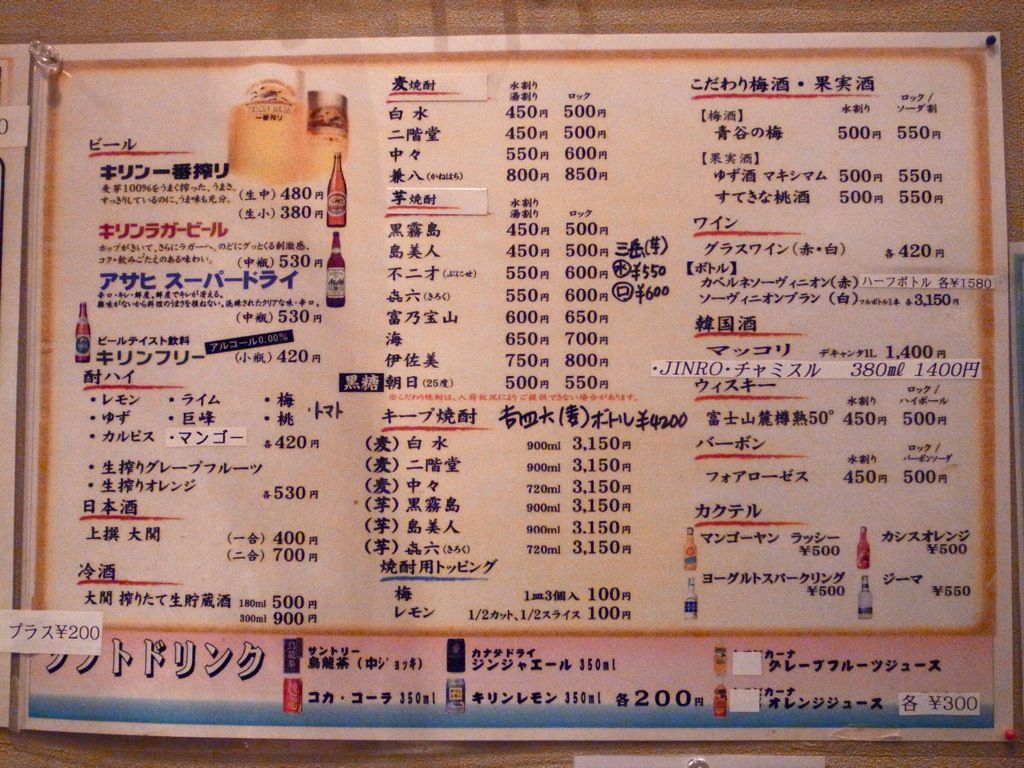 ビール
一番搾り
キリン一番搾り
麦芽100%をうまく搾った、うまさ。
すっきりしているのに、うま味も充分。
(生中) 480円
(生小) 380円
キリンラガービール
ホップがきいて、さらにラガーへ。のどにグッとくる刺激感、
コク・飲みごたえのある味わい。
(中瓶) 530円
アサヒ スーパードライ
辛口・キレ・鮮度。鮮度でキレが冴える。
(中瓶) 530円
ビールテイスト飲料
キリンフリー
アルコール0.00%
(小瓶) 420円
酎ハイ
・レモン ・ライム ・梅
・ゆず ・巨峰 ・桃 ・トマト
・カルピス ・マンゴー 各420円
・生搾りグレープフルーツ
・生搾りオレンジ 各530円
日本酒
上撰 大関 (一合) 400円
(二合) 700円
冷酒
大関 搾りたて生貯蔵酒 180ml 500円
300ml 900円
麦焼酎 水割り 湯割り ロック
白水 450円 500円
二階堂 450円 500円
中々 550円 600円
兼八(かねはち) 800円 850円
芋焼酎 水割り 湯割り ロック
黒霧島 450円 500円
島美人 450円 500円
不二才(ぶにせ) 550円 600円
㐂六(きろく) 550円 600円
富乃宝山 600円 650円
海 650円 700円
伊佐美 750円 800円
三岳(芋)
水 ¥550
ロ ¥600
黒糖 朝日(25度) 500円 550円
※こだわり焼酎は、入荷状況によりご提供できない場合があります。
キープ焼酎 吉四六(麦)ボトル¥4200
(麦)白水 900ml 3,150円
(麦)二階堂 900ml 3,150円
(麦)中々 720ml 3,150円
(芋)黒霧島 900ml 3,150円
(芋)島美人 900ml 3,150円
(芋)㐂六(きろく) 720ml 3,150円
焼酎用トッピング
梅 1皿3個入 100円
レモン 1/2カット、1/2スライス 100円
こだわり梅酒・果実酒
水割り ロック/ソーダ割
【梅酒】
青谷の梅 500円 550円
【果実酒】
ゆず酒 マキシマム 500円 550円
すてきな桃酒 500円 550円
ワイン
グラスワイン(赤・白) 各420円
【ボトル】
カベルネソーヴィニオン(赤) ハーフボトル 各¥1580
ソーヴィニオンブラン (白) フルボトル1本 各3,150円
韓国酒
マッコリ デキャンタ1L 1,400円
・JINRO・チャミスル 380㎖ 1400円
ウィスキー 水割り ロック/ハイボール
富士山麓樽熟50° 450円 500円
バーボン 水割り ロック/バーボンソーダ
フォアローゼス 450円 500円
カクテル
マンゴーヤン ラッシー ¥500
カシスオレンジ ¥500
ヨーグルトスパークリング ¥500
ジーマ ¥550
プラス¥200
ソフトドリンク
サントリー
烏龍茶(中ジョッキ)
コカ・コーラ 350ml
カナダドライ
ジンジャエール 350ml
キリンレモン 350ml 各200円
カーナ
グレープフルーツジュース
カーナ
オレンジジュース
各 ¥300